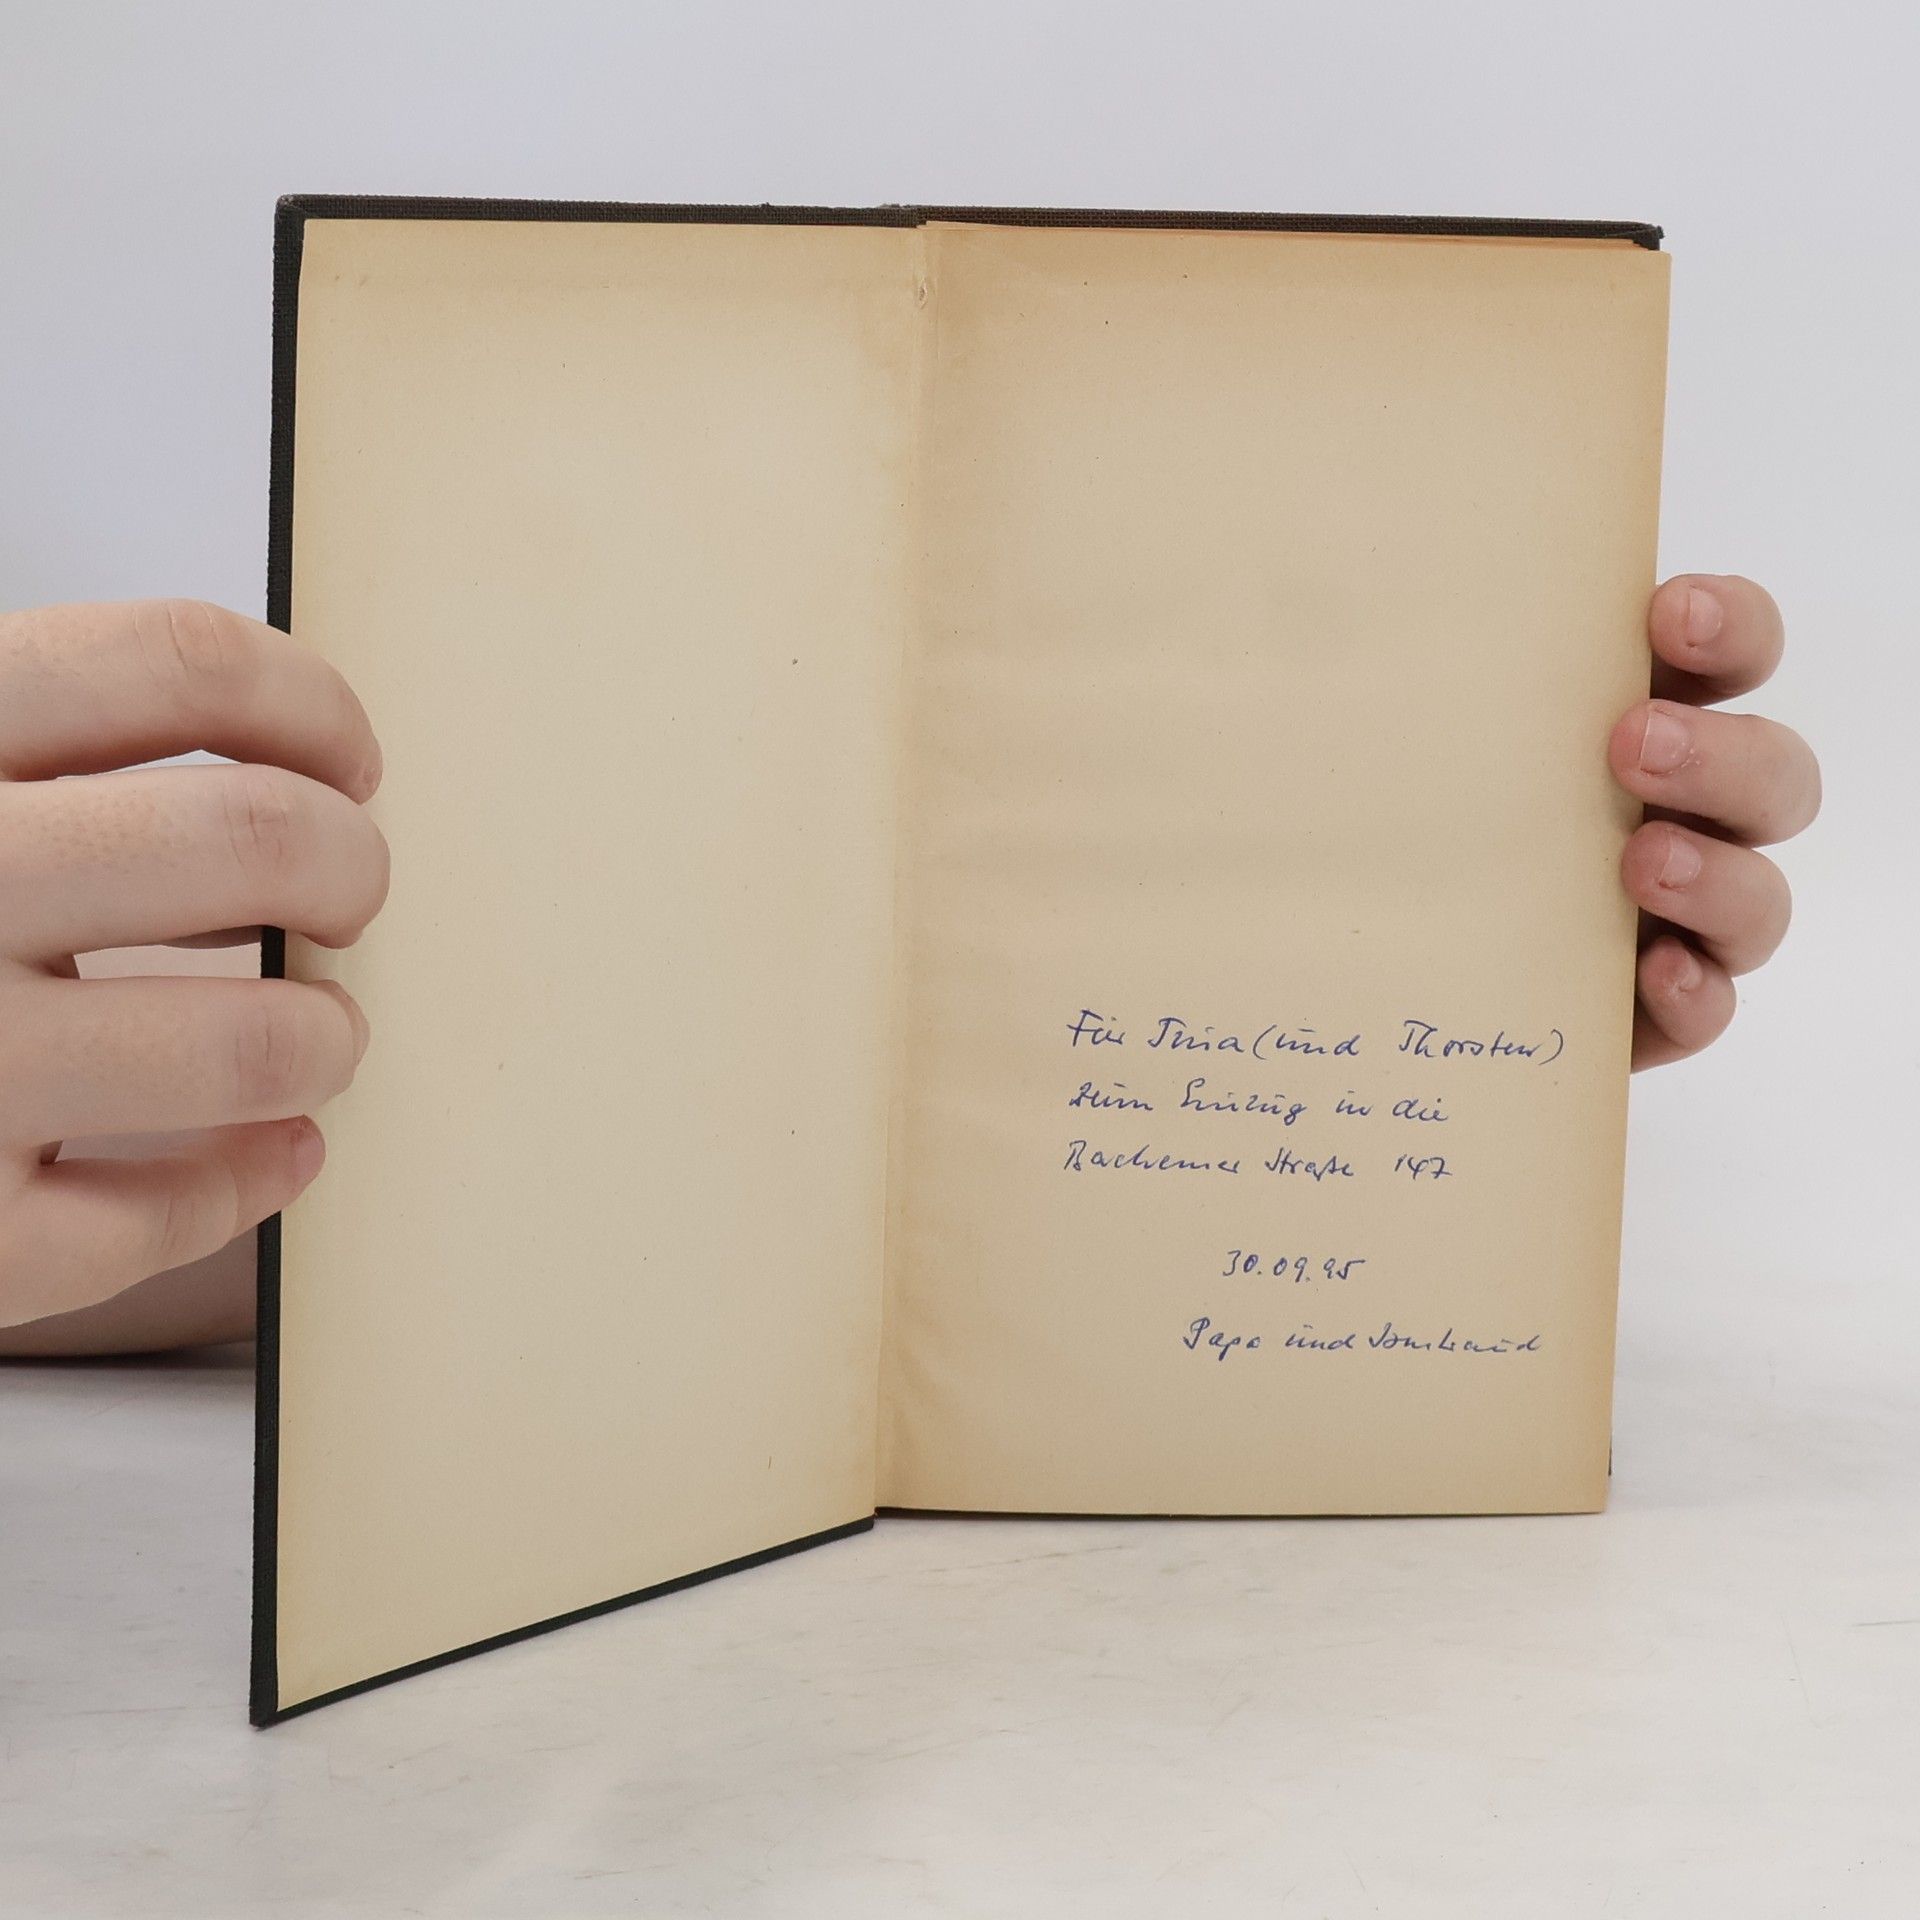 Für Tina (und Thorsten)
zum Einzug in die
Bachemer Straße 147
30.09.95
Papa und Irmtraud